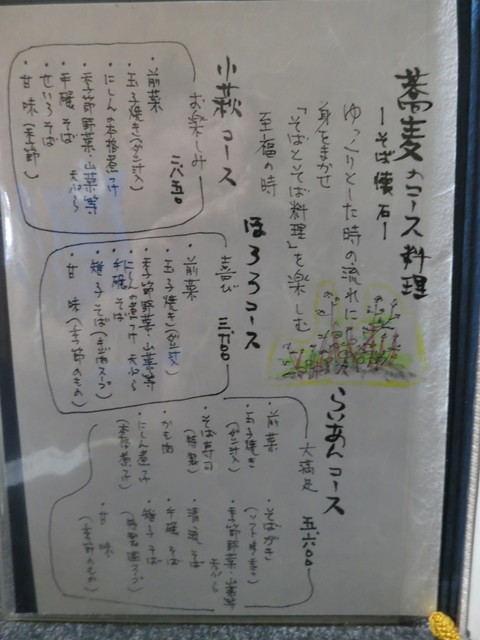 蕎麦のコース料理
ーそば懐石ー
ゆっくりとした時の流れに
身をまかせ
「そばとそば料理」を楽しむ
至福の時
小萩コース
お楽しみ 二八五〇
・前菜
・玉子焼き(夕二枚)
・にしんの本格煮つけ
・季節野菜・山菜等
天ぷら
・手碾そば
・せいろそば
・甘味(季節)
ほろろコース
喜び 三六〇〇
・前菜
・玉子焼き
・にしんの煮つけ
・季節野菜・山菜等
天ぷら
・手碾そば
・雉子そば
・甘 味(季節のもの)
らいあんコース
大満足 五六〇〇
・前菜
・玉子焼き
・そば寿司
・かも肉
・にしん煮つ子
・そばがき
・季節野菜・山菜等
天ぷら
・手碾そば
・雉子そば
・甘 味
(季節のもの)